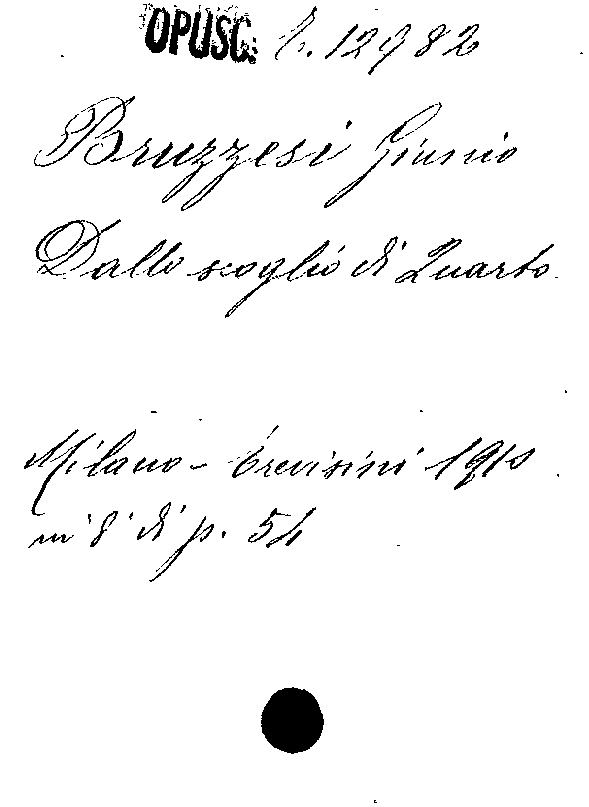 OPUSC. C. 12982
Bruzzesi Giunio
Dallo scoglio di Quarto
Milano - Trevisini 1910
in 8° di p. 54